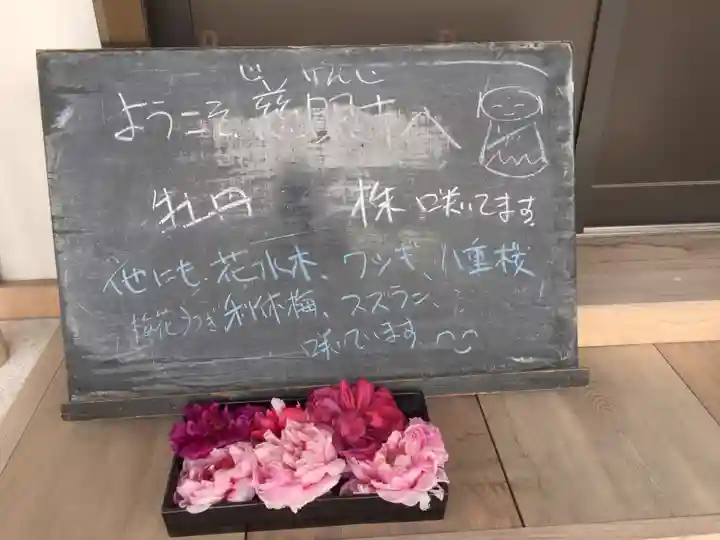 じ げんじ
ようこそ 慈眼寺へ
牡丹 株 咲いてます
他にも 花水木、ツツジ、八重桜
梅花うつぎ 利休梅、スズラン、
咲いています